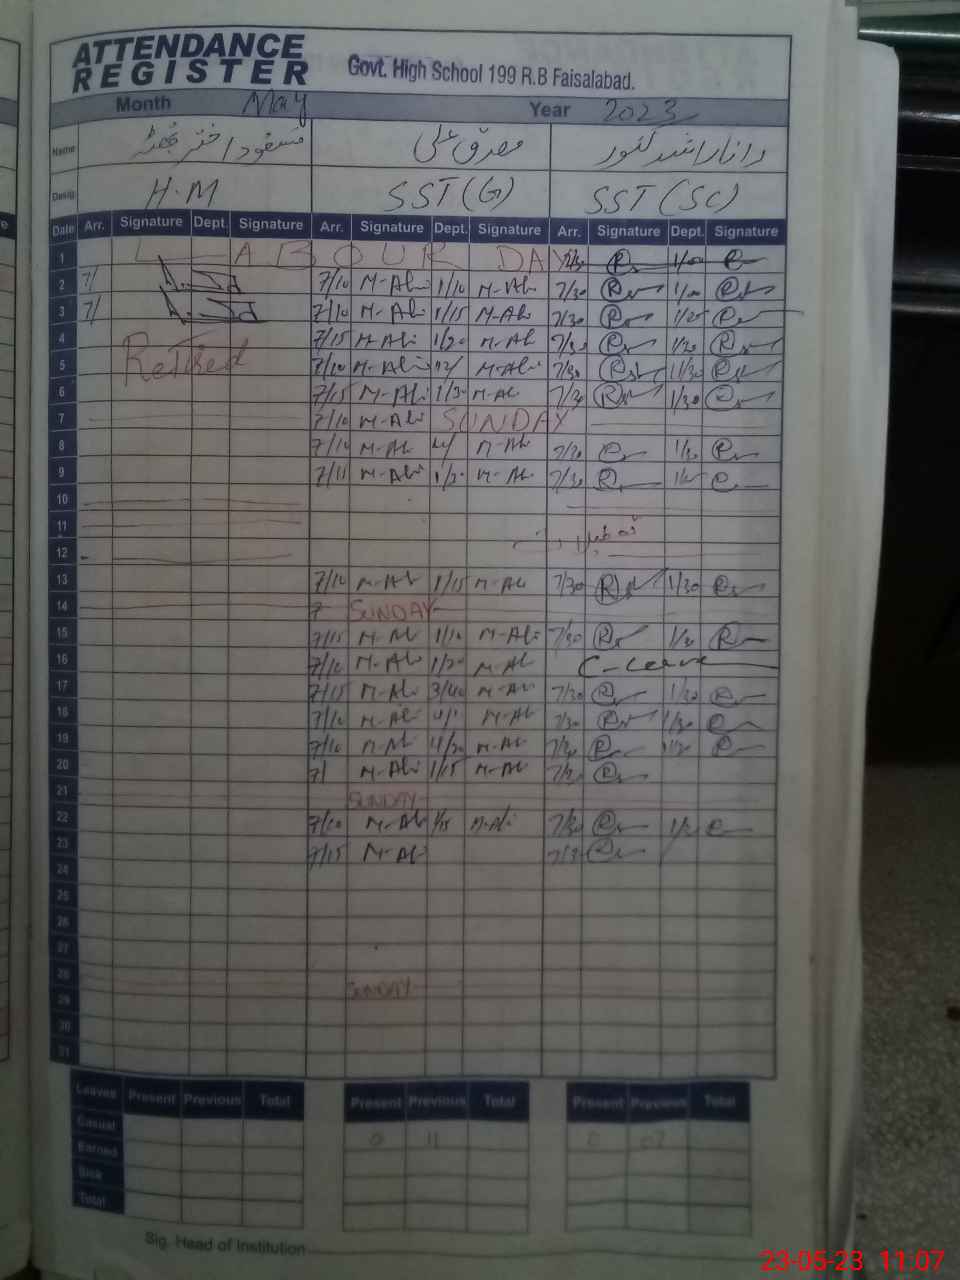 ATTENDANCE
REGISTER
Govt. High School 199 R.B Faisalabad.
Month May Year 2023
Name مسعود اختر
Desig H.M SST(G) SST(SC)
Date Arr. Signature Dept. Signature Arr. Signature Dept. Signature Arr. Signature Dept. Signature
1 LABOUR DAY
2 7/ 7/10 M-Ali 1/10 M-Ali 7/30
3 7/ 7/10 M-Ali 1/15 M-Ali 7/30 1/25
4 Retired 7/15 M-Ali 1/20 M-Ali 7/30 1/30
5 7/10 M-Ali M-Ali 7/30 1/30
6 7/15 M-Ali 1/30 M-Ali 7/30 1/30
7 7/10 M-Ali SUNDAY
8 7/10 M-Ali M-Ali 7/30 1/30
9 7/15 M-Ali 1/20 M-Ali 7/30
10
11
12
13 7/10 M-Ali 1/15 M-Ali 7/30 1/30
14 7 SUNDAY
15 7/15 M-Ali 1/10 M-Ali 7/30 1/30
16 7/10 M-Ali 1/20 M-Ali C-Leave
17 7/15 M-Ali 3/40 M-Ali 7/30 1/30
18 7/10 M-Ali M-Ali 7/30 1/30
19 7/10 M-Ali 4/20 M-Ali 7/30 1/30
20 7/ M-Ali 1/15 M-Ali 7/30
21 SUNDAY
22 7/10 M-Ali 1/15 M-Ali 7/30 1/30
23 7/15 M-Ali 7/30
24
25
26
27
28 SUNDAY
29
30
31
Leaves Present Previous Total Present Previous Total Present Previous Total
Casual 0 11 0 07
Earned
Sick
Total
Sig. Head of Institution
23-05-23 11:07